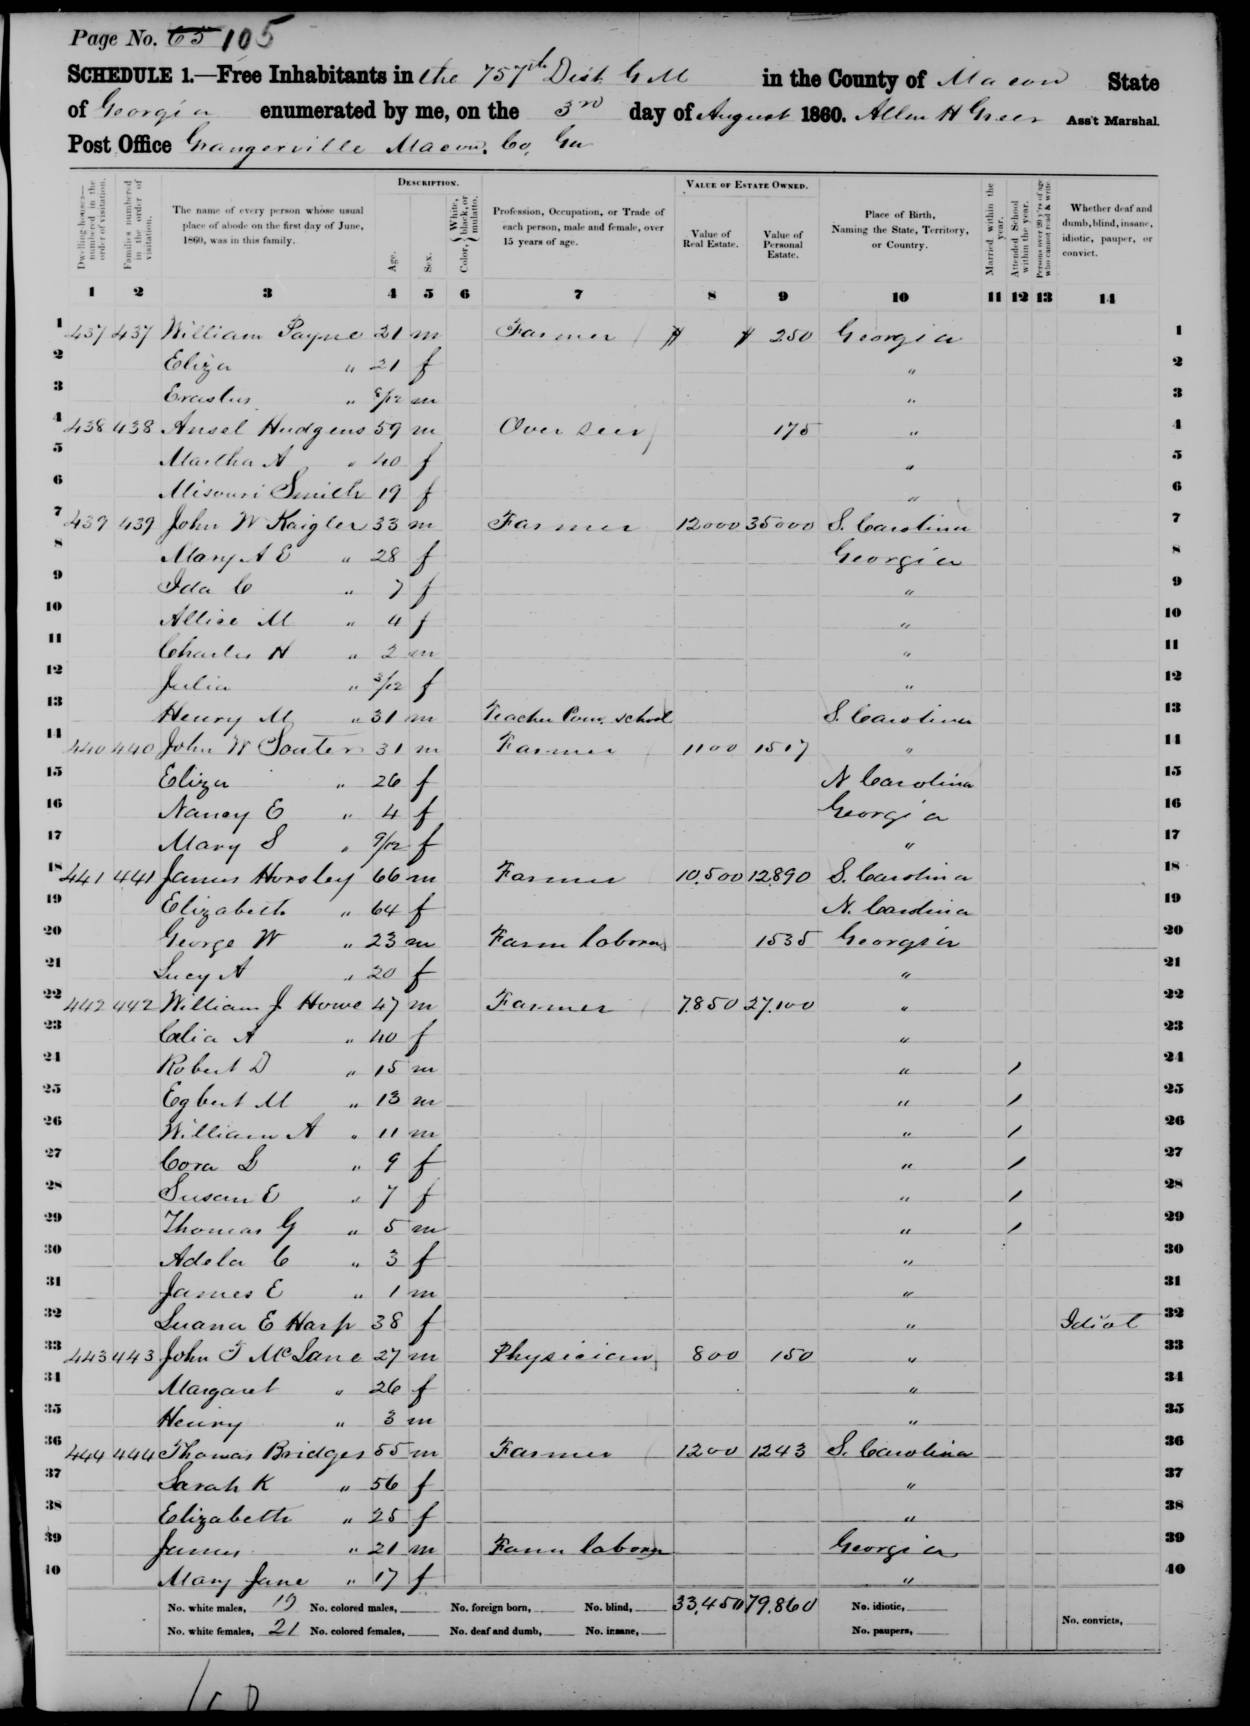 Page No. 65 105
SCHEDULE 1.—Free Inhabitants in the 757th Dist G M in the County of Macon State
of Georgia enumerated by me, on the 3rd day of August 1860. Allen H Greer Ass't Marshal.
Post Office Grangerville Macon. Co, Ga
Dwelling-houses—numbered in the order of visitation.
Families numbered in the order of visitation.
The name of every person whose usual place of abode on the first day of June, 1860, was in this family.
DESCRIPTION.
Age.
Sex.
Color, White, black, or mulatto.
Profession, Occupation, or Trade of each person, male and female, over 15 years of age.
VALUE OF ESTATE OWNED.
Value of Real Estate.
Value of Personal Estate.
Place of Birth, Naming the State, Territory, or Country.
Married within the year.
Attended School within the year.
Persons over 20 y'rs of age who cannot read & write
Whether deaf and dumb, blind, insane, idiotic, pauper, or convict.
1 2 3 4 5 6 7 8 9 10 11 12 13 14
1 437 437 William Payne 21 m Farmer $ $ 250 Georgia 1
2 Eliza " 21 f " 2
3 Erastus " 8/12 m " 3
4 438 438 Ansel Hudgens 59 m Over seer 175 " 4
5 Martha A " 40 f " 5
6 Misouri Smith 19 f " 6
7 439 439 John W Kaigler 33 m Farmer 12000 35000 S. Carolina 7
8 Mary A E " 28 f Georgia 8
9 Ida C " 7 f " 9
10 Allice M " 4 f " 10
11 Charles H " 2 m " 11
12 Julia " 3/12 f " 12
13 Henry M " 31 m Teacher Com. school S. Carolina 13
14 440 440 John W Souter 31 m Farmer 1100 1517 " 14
15 Eliza " 26 f N Carolina 15
16 Nancy E " 4 f Georgia 16
17 Mary S " 9/12 f " 17
18 441 441 James Horsley 66 m Farmer 10,500 12890 S. Carolina 18
19 Elizabeth " 64 f N. Carolina 19
20 George W " 23 m Farm laborer 1535 Georgia 20
21 Lucy A " 20 f " 21
22 442 442 William J Howe 47 m Farmer 7.850 27.100 " 22
23 Celia A " 40 f " 23
24 Robert D " 15 m " / 24
25 Egbert M " 13 m " / 25
26 William A " 11 m " / 26
27 Cora L " 9 f " / 27
28 Susan E " 7 f " / 28
29 Thomas G " 5 m " / 29
30 Adela C " 3 f " 30
31 James E " 1 m " 31
32 Luana E Harp 38 f " Idiot 32
33 443 443 John T McLane 27 m Physician 800 150 " 33
34 Margaret " 26 f " 34
35 Henry " 3 m " 35
36 444 444 Thomas Bridges 55 m Farmer 1200 1243 S. Carolina 36
37 Sarah K " 56 f " 37
38 Elizabeth " 25 f " 38
39 James " 21 m Farm laborer Georgia 39
40 Mary Jane " 17 f " 40
No. white males, 19 No. colored males, No. foreign born, No. blind, 33,450 79,860 No. idiotic,
No. white females, 21 No. colored females, No. deaf and dumb, No. insane, No. paupers, No. convicts,